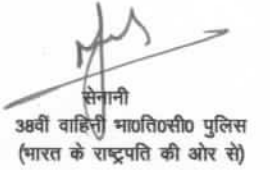 सेनानी
38वीं वाहिनी भा0ति0सी0 पुलिस
(भारत के राष्ट्रपति की ओर से)